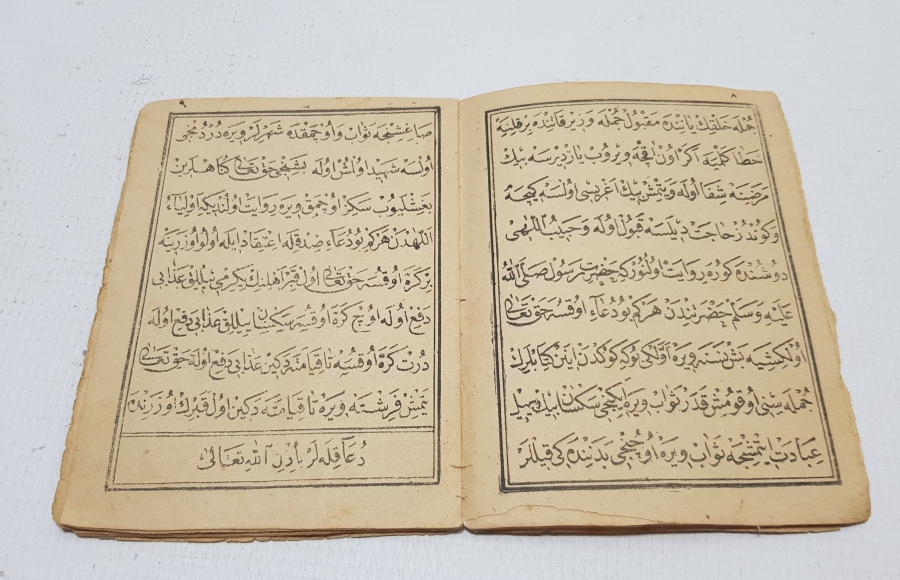 ٨
جُمله خَلقِك يانِنده مَقبُول جُمله وَزير قاتِنده بِر قُلِنه
خَطا كَلميه اكر اون اقچه ويروب يازديرسه بيك
مَرضِنه شِفا اوله ويتمش بيك اغريسى اولسه كيجه
وكوندز حاجت ديلسه قبول اوله وحبيب اللهى
دوشنده كوره روايت اولنور كه حضرت رسول صلى الله
عليه وسلم حضرتندن هركم بو دعاء اوقسه حق تعالى
اول كشيه بش نسنه ويره اولكى بوكه كوكدن اينن كتابلرك
جمله سنى اوقومش قدر ثواب ويره ايكنجى سكسان بيك ييل
عبادت ايتمشجه ثواب ويره اوچنجى بدنده كى قيللر
٨
صاغشنجه ثواب واوچمقده شهرلر ويره دردنجى
اولسه شهيد اولمش اوله بشنجى حق تعالى كناهلرين
بغشليوب سكز اوچمق ويره روايت اولنديكه اولياء
اللهدن هركم بو دعاء صدقله اعتقاد ايله اولو اوزرينه
بر كره اوقسه حق تعالى اول قبر اهلنك يكرمى ييللق عذابى
دفع اوله اوچ كره اوقسه سكسان ييللق عذابى دفع اوله
درت كره اوقسه تا قيامته دكين عذابى دفع اوله حق تعالى
يتمش فرشته ويره تا قيامته دكين اول قبرك اوزرنده
دعا قله لر باذن الله تعالى